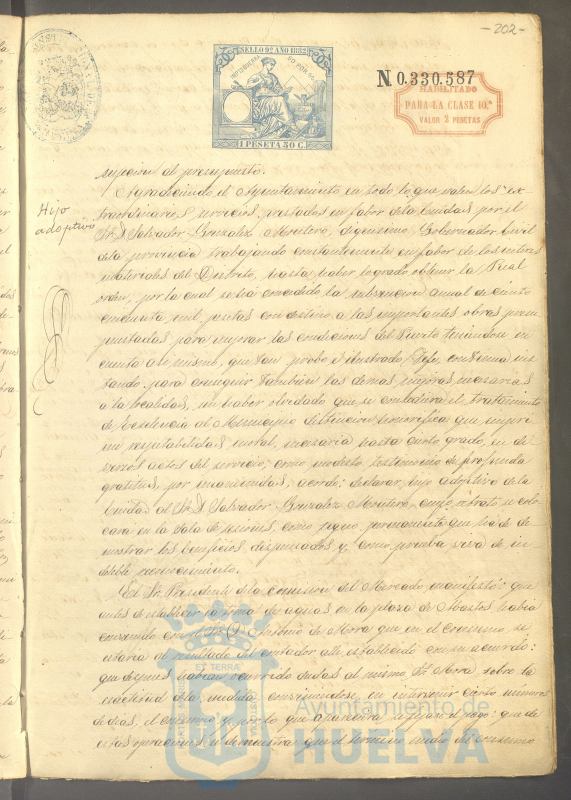 -202-
SELLO 9º AÑO 1882
1 PESETA 50 C.
N. 0.330.587
HABILITADO
PARA LA CLASE 10.ª
VALOR 2 PESETAS
Hijo
adoptivo
al presupuesto.
Agradeciendo el Ayuntamiento en todo lo que valen los ex
traordinarios servicios, prestados en fabor de la Ciudad por el
Sr. D. Salvador Gonzalez Montero, dignisimo Gobernador Civil
de la provincia trabajando constantemente en fabor de los intereses
materiales del Distrito, hasta haber logrado obtener la Real
orden, por la cual se ha concedido la subvencion anual de ciento
cincuenta mil pesetas con destino a las importantes obras
para mejorar las condiciones del Puerto teniendose en
cuenta a lo mismo, que tan probo é ilustrado Jefe continua
para conseguir tambien las demas mejoras necesarias
a la localidad, sin haber olvidado que se concediera el tratamiento
de Excelencia al Municipio distincion honorifica que
respetabilidad moral, necesaria hasta cierto grado, en di
versos actos del servicio; como modesto testimonio de profunda
gratitud, por unanimidad, acordó: declarar hijo adoptivo de la
Ciudad al Sr. D. Salvador Gonzalez Montero, cuyo retrato se colo
cará en la Sala de sesiones, como permanente que ha de de
mostrar los beneficios dispensados y, como prueba viva de in
deleble reconocimiento.
El Sr. Presidente de la comision del Mercado manifestó: que
antes de establecer la toma de aguas en la plaza de Abastos habia
convenido con el Sr. D. Antonio de Mora que en el consumo se
estaria al resultado del contador alli establecido
que despues habian ocurrido dudas al mismo Sr. Mora, sobre la
exactitud de la medida conviniendose, en intervenir cierto numero
de dias, el consumo y por lo que apareciera el pago: que de
estas operaciones el termino medio del consumo
ET TERRA
Ayuntamiento de
HUELVA